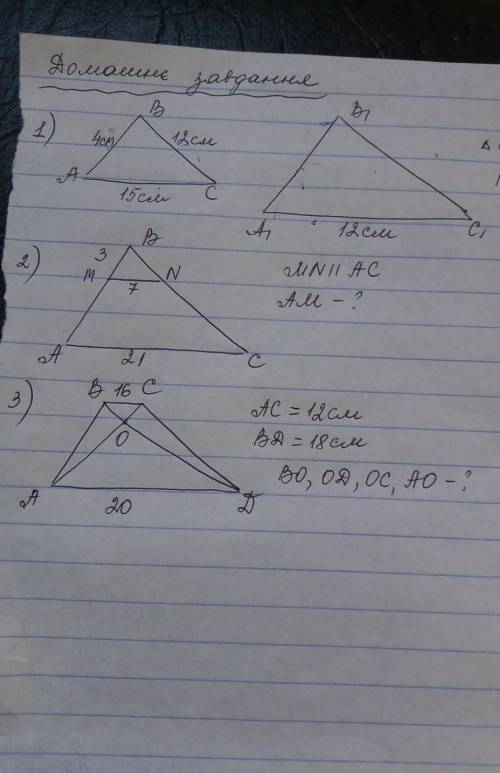 Домашнє завдання
1)
B
4см 12см
A C
15см
B₁
A₁ C₁
12см
2)
B
3
M N
7
A C
21
MN || AC
AM - ?
3)
B 16 C
O
A D
20
AC = 12см
BD = 18см
BO, OD, OC, AO - ?